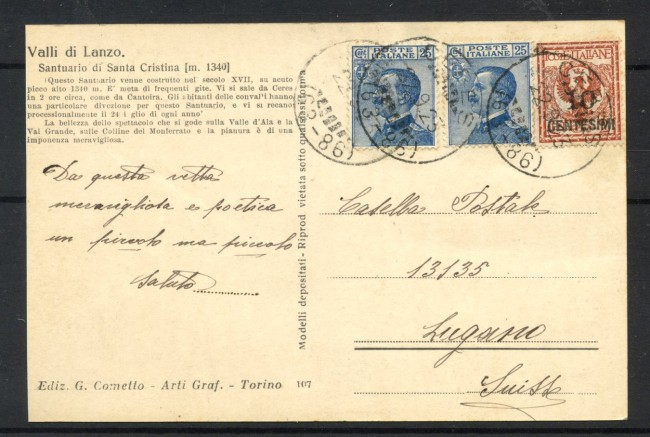 Valli di Lanzo.
Santuario di Santa Cristina [m. 1340]
(Questo Santuario venne costrutto nel secolo XVII, su acuto
picco alto 1340 m. E' meta di frequenti gite. Vi si sale da Ceres
in 2 ore circa, come da Cantoira. Gli abitanti delle convalli hanno
una particolare divozione per questo Santuario, e vi si recano
processionalmente il 24 luglio di ogni anno)
La bellezza dello spettacolo che si gode sulla Valle d'Ala e la
Val Grande, sulle Colline del Monferrato e la pianura è di una
imponenza meravigliosa.
Da questa vetta
meravigliosa e poetica
un piccolo ma piccolo
saluto
Ediz. G. Cometto - Arti Graf. - Torino 107
Modelli depositati - Riprod vietata sotto qualsiasi forma
POSTE ITALIANE
25
POSTE ITALIANE
25
POSTE ITALIANE
10
CENTESIMI
Casella Postale
13135
Lugano
Suisse